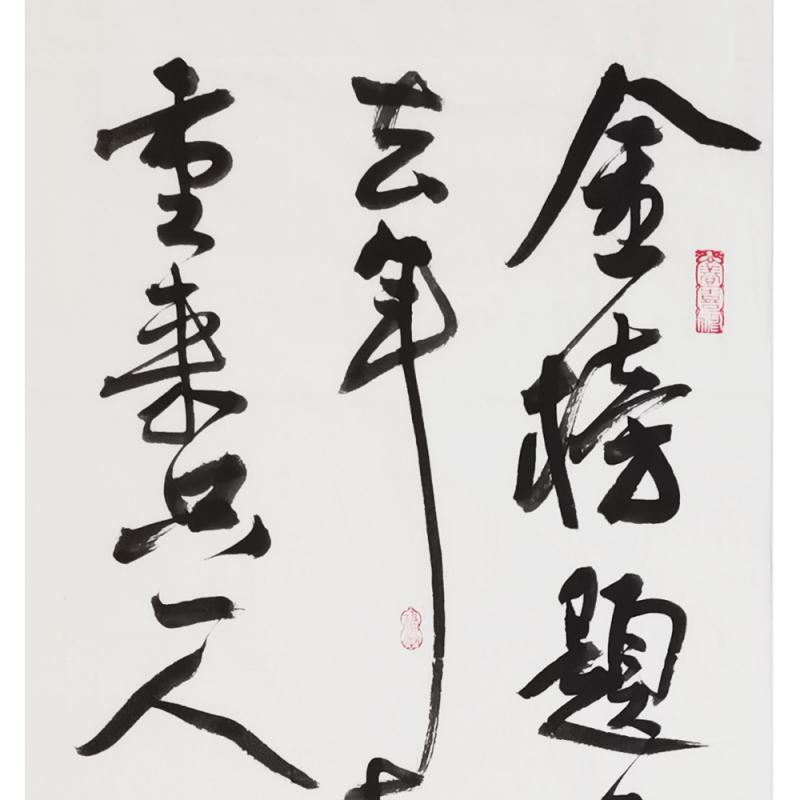 金榜题
去年
重来只一人